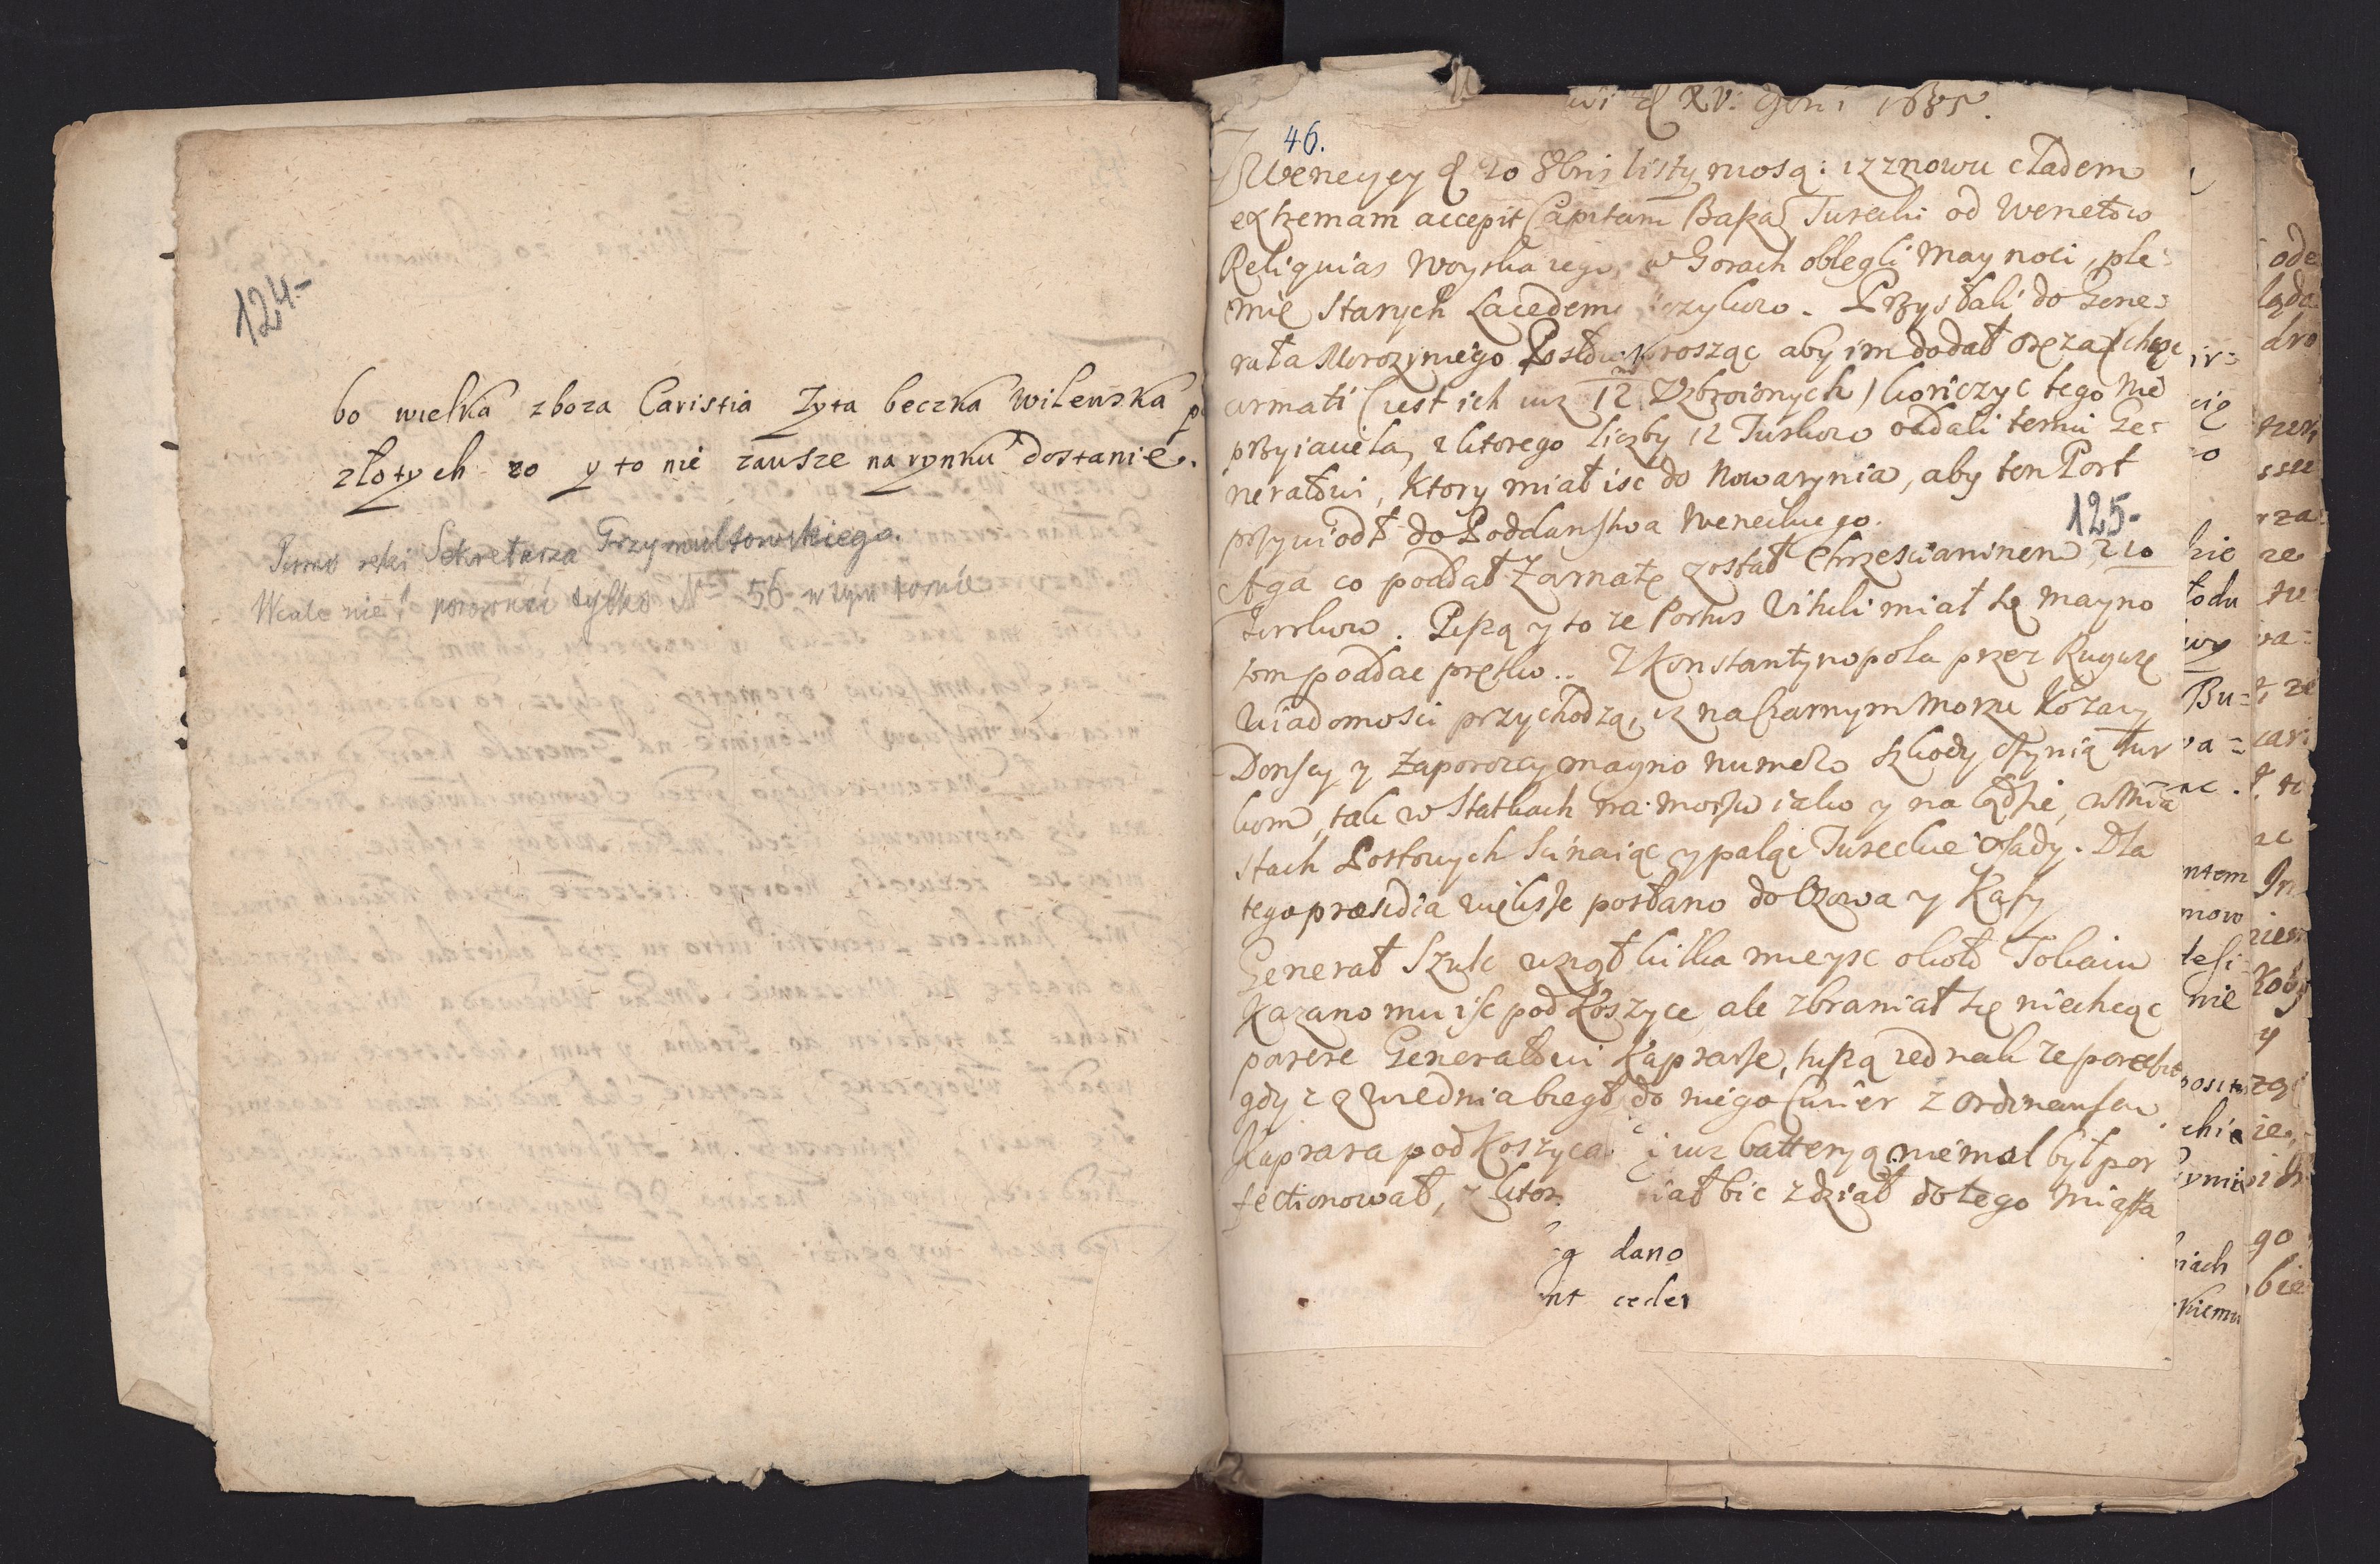 124-
bo wielka zboza Caristia Zyta beczka Wilenska
złotych 20 y to nie zawsze na rynku dostanie.
Pismo ręki Sekretarza Grzymułtowskiego.
Wcale nie! porównać tylko № 56 w tym tomie
1685.
46.
Z Weneycy d 20 8bris listy niosą: iz znowu cladem
extremam accepit Capitan Basza Turecki od Wenetow
Reliquias Woyska iego w Gorach oblegli Maynoci, ple=
mie starych Lacedem czykow. Przysłali do Gene=
rała Morozyniego Posłow prosząc aby im dodał oręza chcąc
armati (iest ich iuz 12 Uzbroionych) konczyc tego nie
przyiaciela, z ktorego liczby 12 Turkow oddali temu Ge=
nerałowi, Ktory miał isc do Nowarynia, aby ten Port
przywiodł do Poddanstwa Weneckiego.
125-
Aga co poddał Zarnatę został Chrzescianinem z 10
Turkow. Piszą y to ze Portus Vituli miał się Mayno
tom poddac prętko.. Z Konstantynopola przez Raguzę
Wiadomosci przychodzą, iz na Czarnym Morzu Kozacy
Donscy y Zaporozcy magno numero szkody czynią Tur
kom, tak w Statkach na morzu iako y na lądzie, w Mia
stach Portowych scinaiąc y paląc Tureckie osady. Dla
tego praesidia większe posłano do Ozowa y Kafy
Generał Szulc wziął kilka mieysc około Tokaiu
Kazano mu isc pod Koszyce ale zbraniał się niechcąc
parere Generałowi Kaprarze, tuszą iednak ze
gdy z Wiednia biegł do niego Curier z ordinansem
Kaprara pod Koszyca iuz batteryą niemal był per
fectionował, z ktor iał bic z dział do tego Miasta
dano